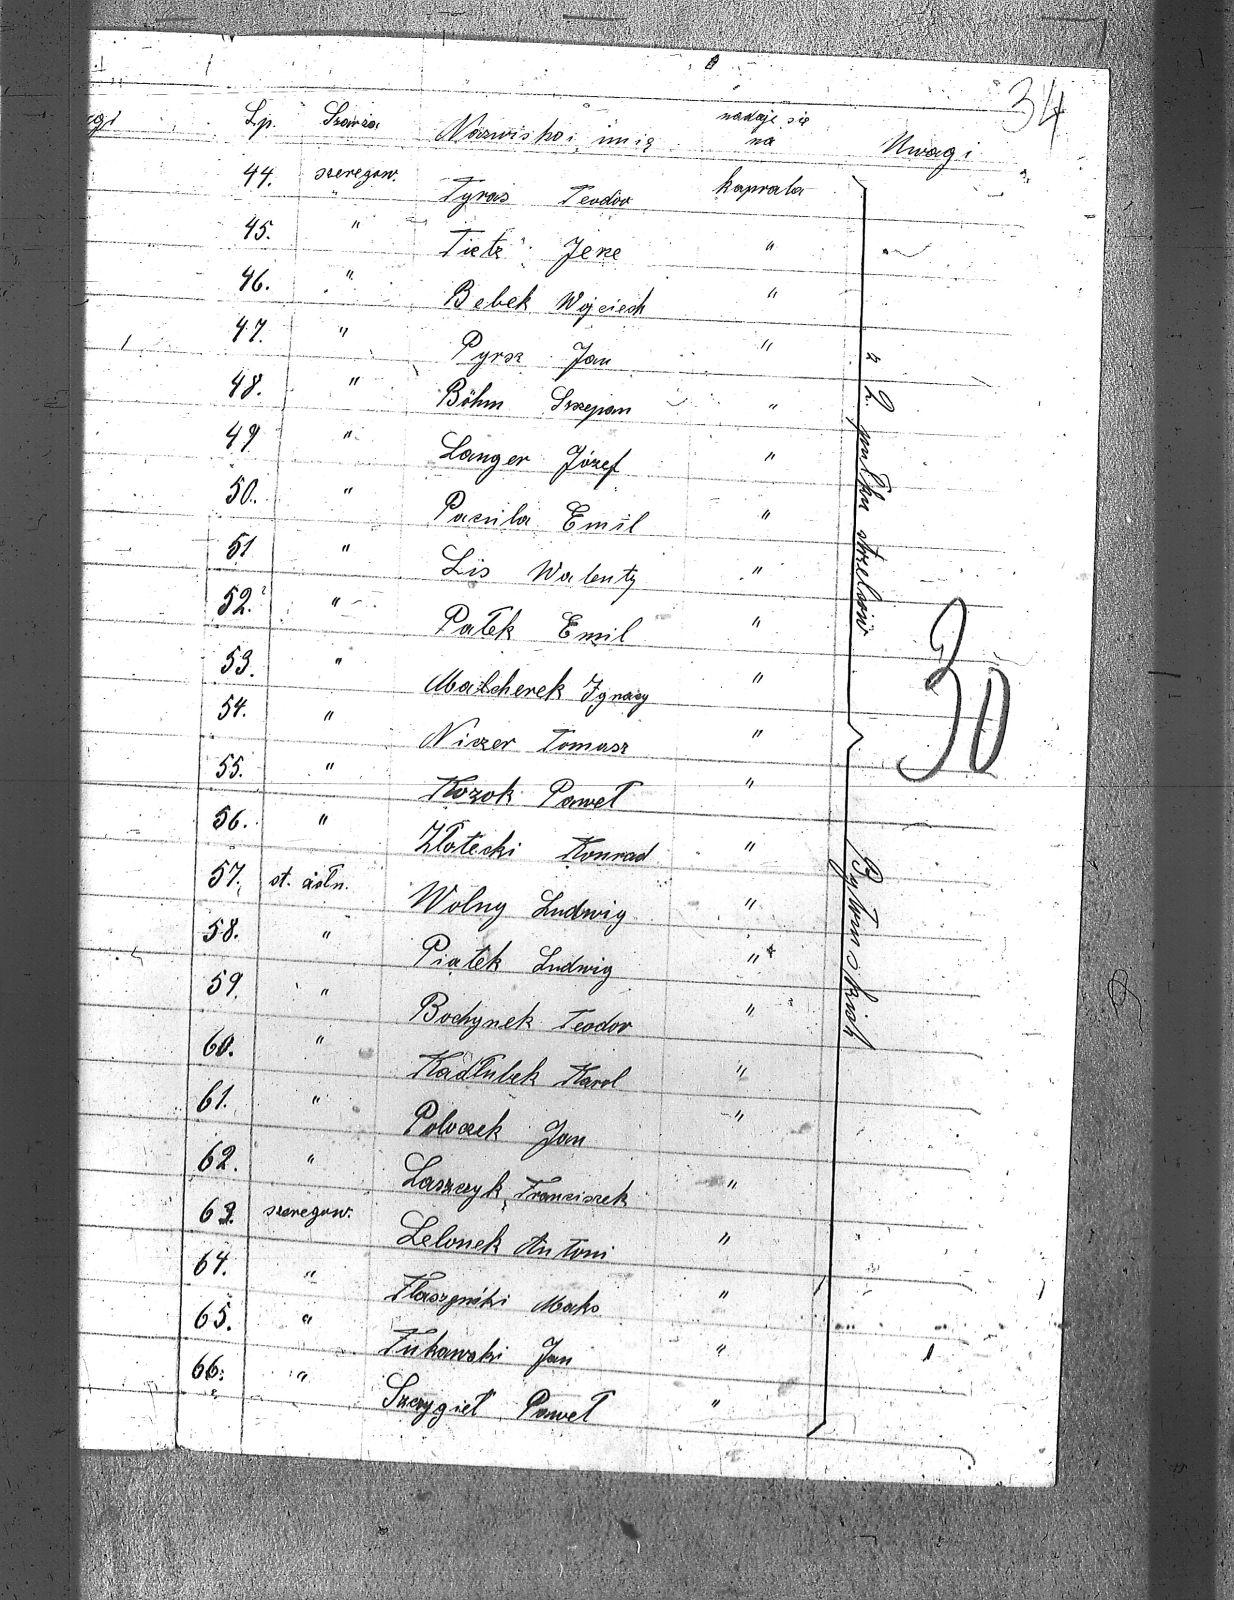 34
Lp. Szarża Nazwisko i imię nadaje się na Uwagi
44. szeregow. Tyras Teodor kaprala
45. " Tietz Jerze "
46. " Bebek Wojciech "
47. " Pyrsz Jan "
48. " Böhm Szczepan "
49 " Langer Józef "
50. " Pacula Emil "
51 " Lis Walenty "
52. " Pałek Emil "
53. " Małcherek Ignacy "
54. " Niczer Tomasz "
55. " Kozok Paweł "
56. " Złotecki Konrad "
57. st. żołn. Wolny Ludwig "
58. " Piątek Ludwig "
59. " Bochynek Teodor "
60. " Kadłubek Karol "
61. " Poloczek Jan "
62. " Laszczyk Franciszek "
63. szeregow. Lelonek Antoni "
64. " Maks "
65. " Jan "
66. " Szczygieł Paweł "
z 2. pułku strzelców Bytomskich
30